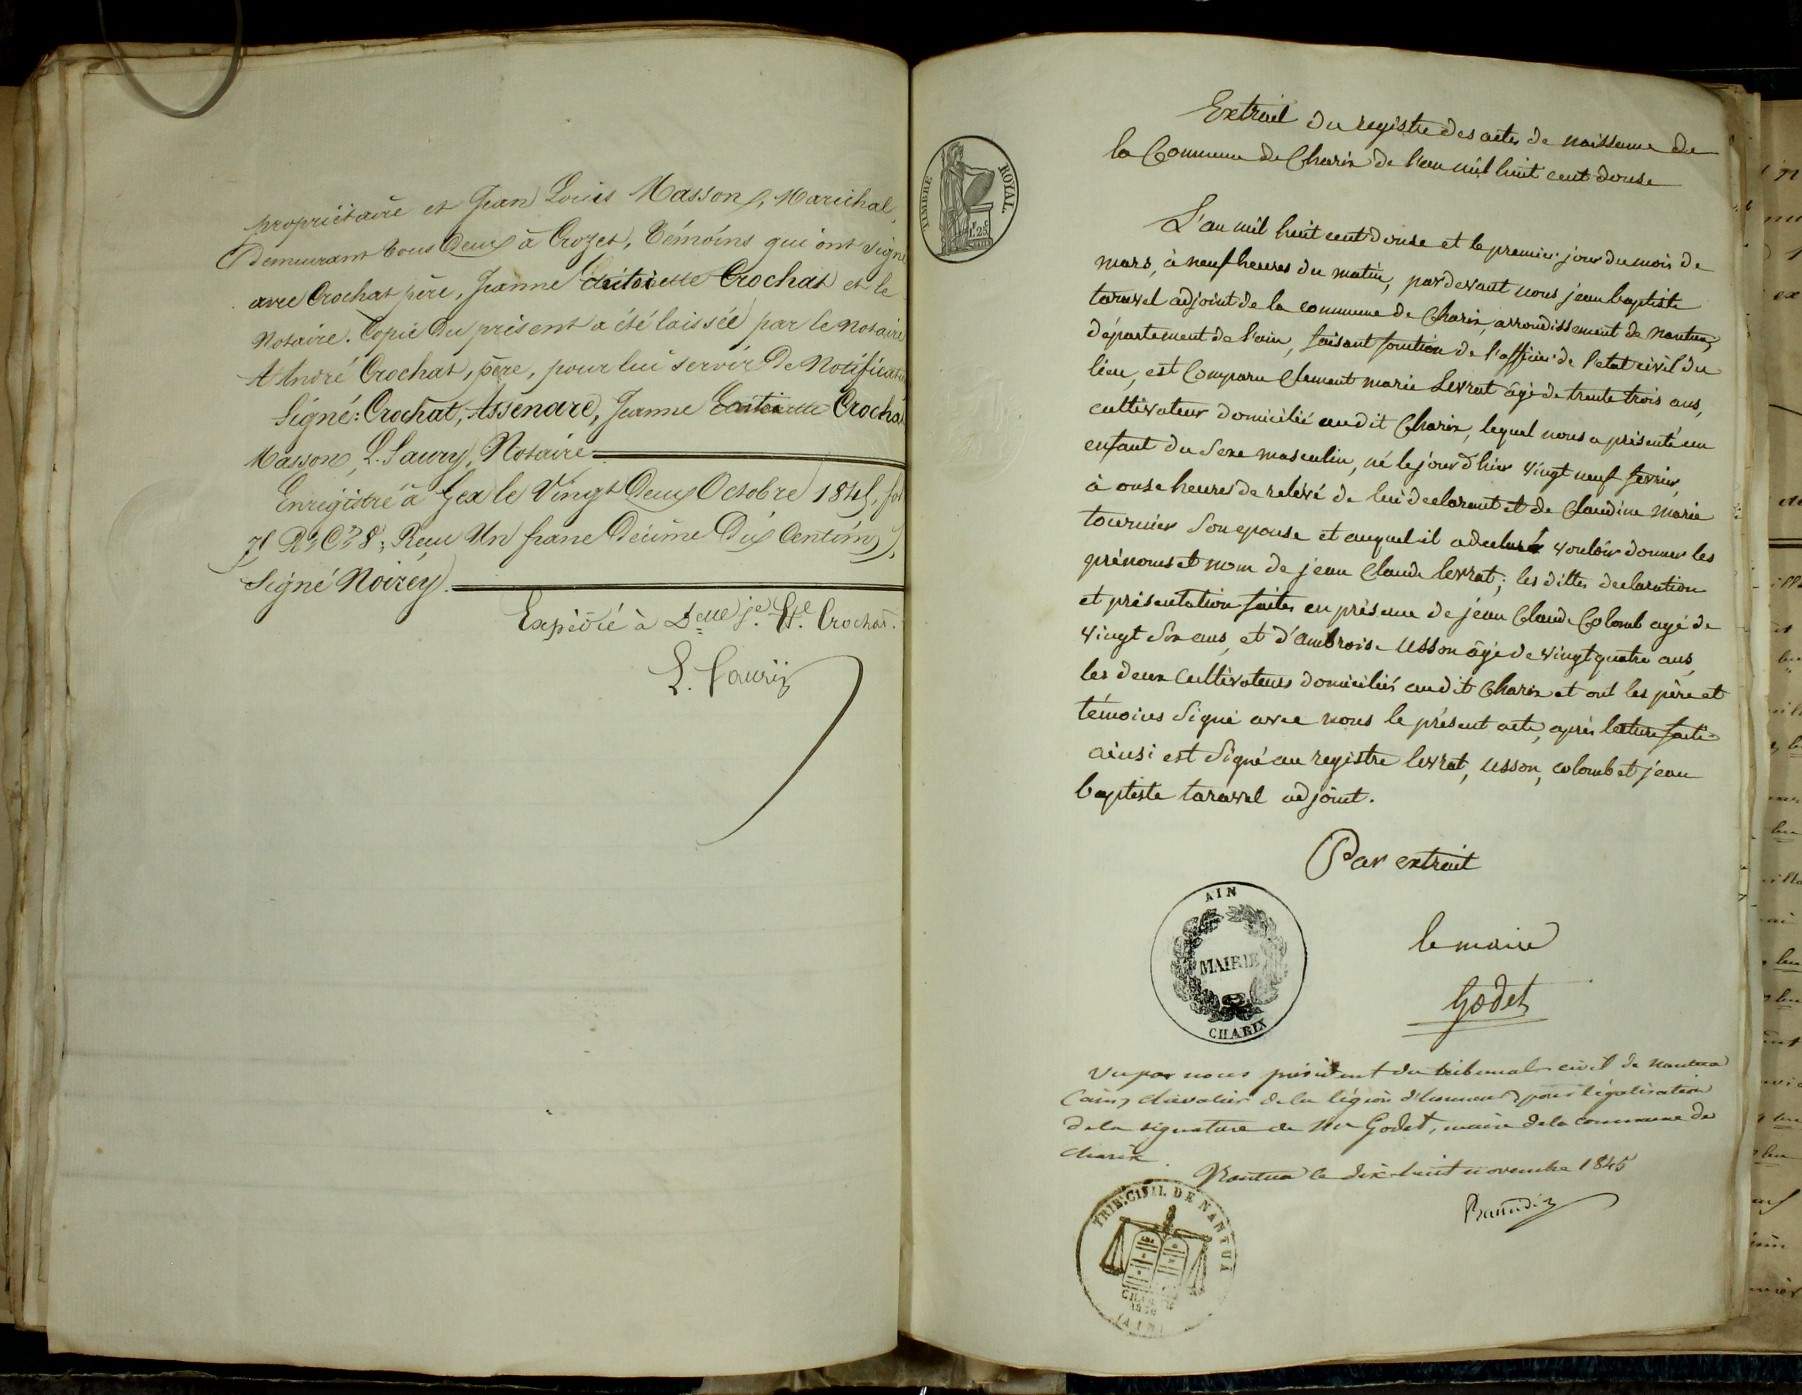 propriétaire et Jean Louis Masson, Maréchal,
demeurant tous Deux à Crozet, Témoins qui ont signé
avec Crochat père, Jeanne Antoinette Crochat et le
Notaire. Copie du présent a été laissée par le Notaire
A André Crochat, père, pour lui servir De Notification
Signé: Crochat, Assenare, Jeanne Crochat
Masson, L. Saury, Notaire
Enregistré à Gex le Vingt Deux Octobre 1845, fol
71 Rº Cº 8; Reçu Un franc Décime Dix Centimes,
Signé Noirey
Expédié à Delle Jne Crochat.
L. Saury
TIMBRE ROYAL
1F 25
Extrait du registre des actes de naissance de
la Commune de Charix de l'an mil huit cent douse
L'an mil huit cent douse et le premier jour du mois de
mars, à neuf heures du matin, pardevant nous jean baptiste
taravel adjoint de la commune de Charix, arrondissement de nantua,
département de l'ain, faisant fonction de l'officier de l'etat civil du
lieu, est Comparu Clement marie Levrat âgé de trente trois ans,
cultivateur domicilié audit Charix, lequel nous a présenté un
enfant du Sexe masculin, né le jour d'hier vingt neuf fevrier,
à onse heures de relevé de lui declarant et de Claudine Marie
tournier Son epouse et auquel il a declaré vouloir donner les
prénoms et nom de jean Claude levrat; les dittes declaration
et présentation faites en présence de jean Claude Colomb agé de
vingt Six ans, et d'ambroise Usson âgé de vingt quatre ans,
les deux Cultivateurs domiciliés audit Charix et ont les père et
témoins Signé avec nous le présent acte, après lecture faite
ainsi est Signé au registre levrat, usson, colomb et jean
baptiste taravel adjoint.
Par extrait
AIN
MAIRIE
CHARIX
le maire
Godet
Vu par nous président du tribunal civil de nantua
(ain), chevalier de la légion d'honneur pour légalisation
de la signature de Mr Godet, maire de la commune de
charix.
Nantua le dix-huit novembre 1845
TRIB. CIVIL DE NANTUA
(AIN)